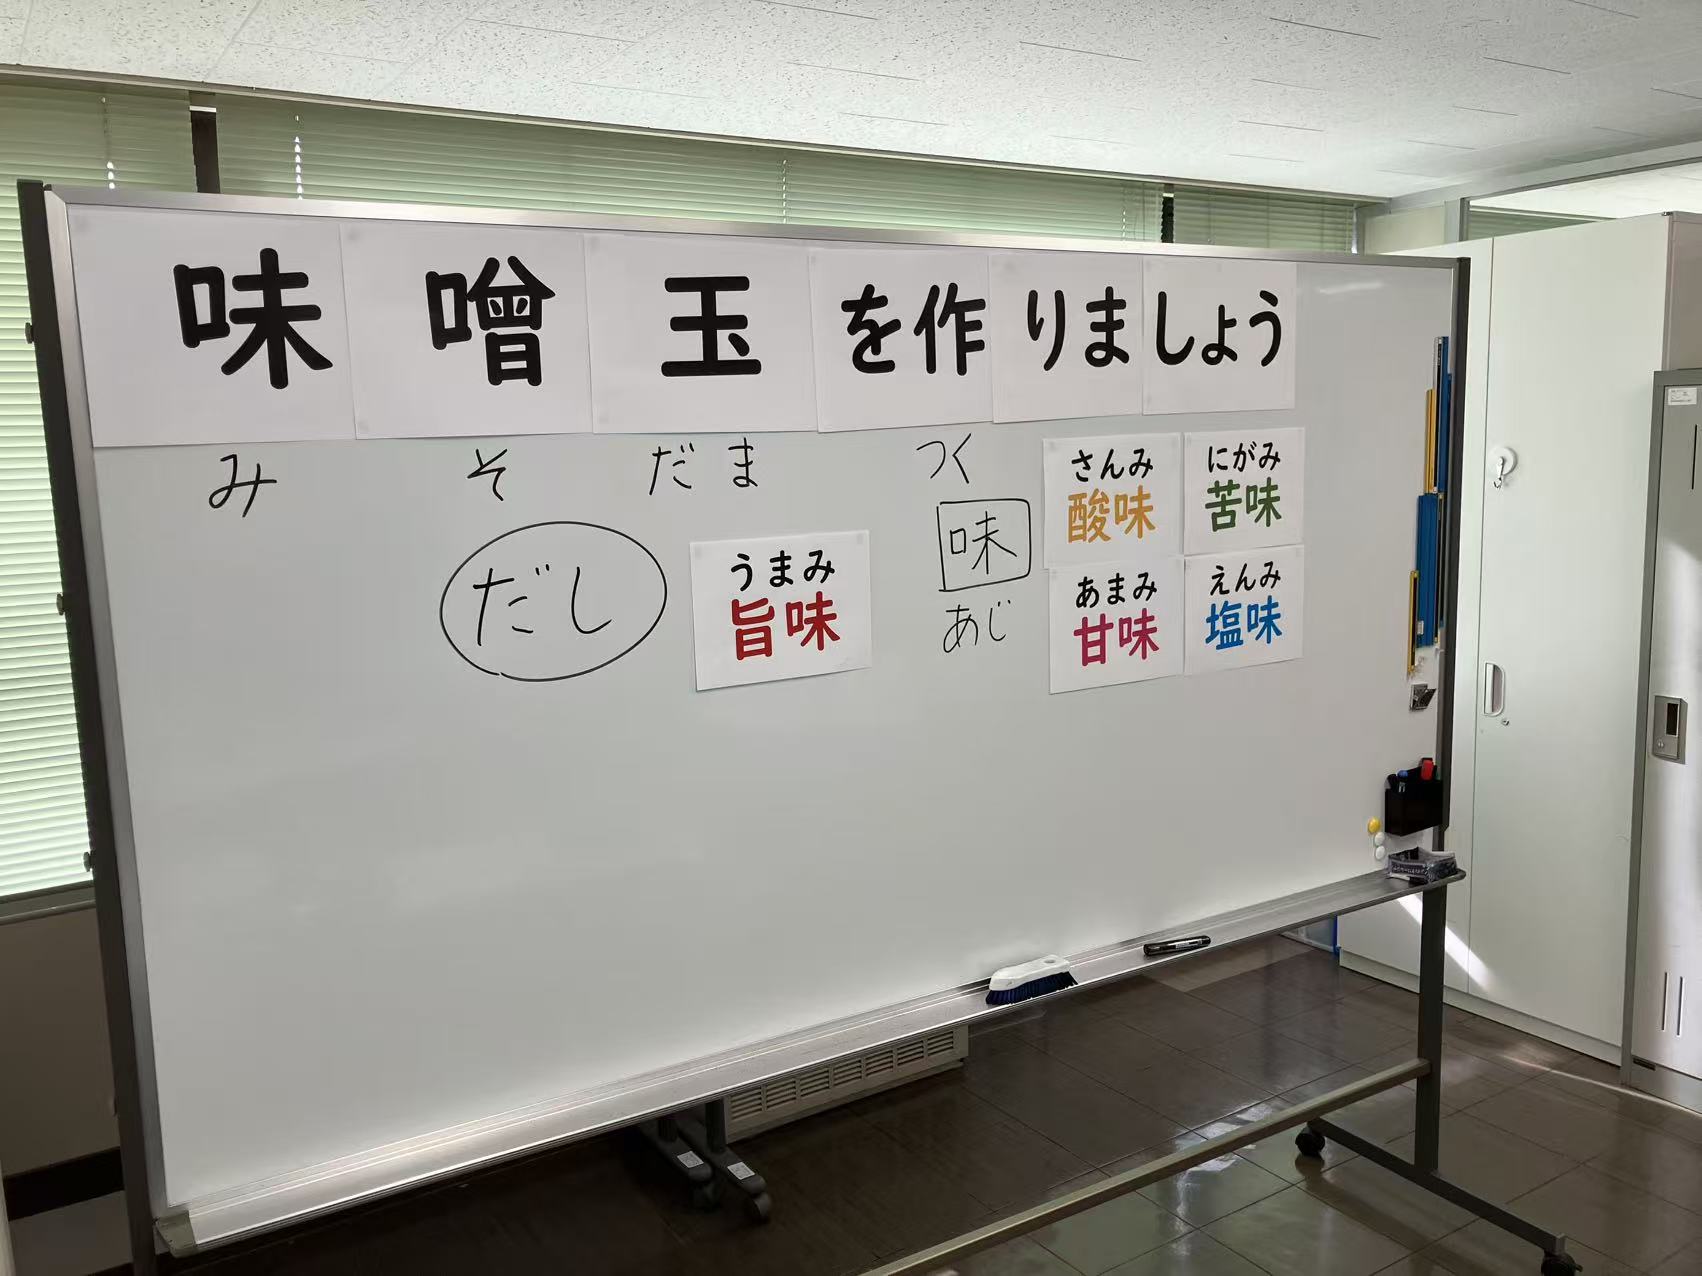 味噌玉を作りましょう
みそだま つく
だし
うまみ
旨味
味
あじ
さんみ
酸味
にがみ
苦味
あまみ
甘味
えんみ
塩味